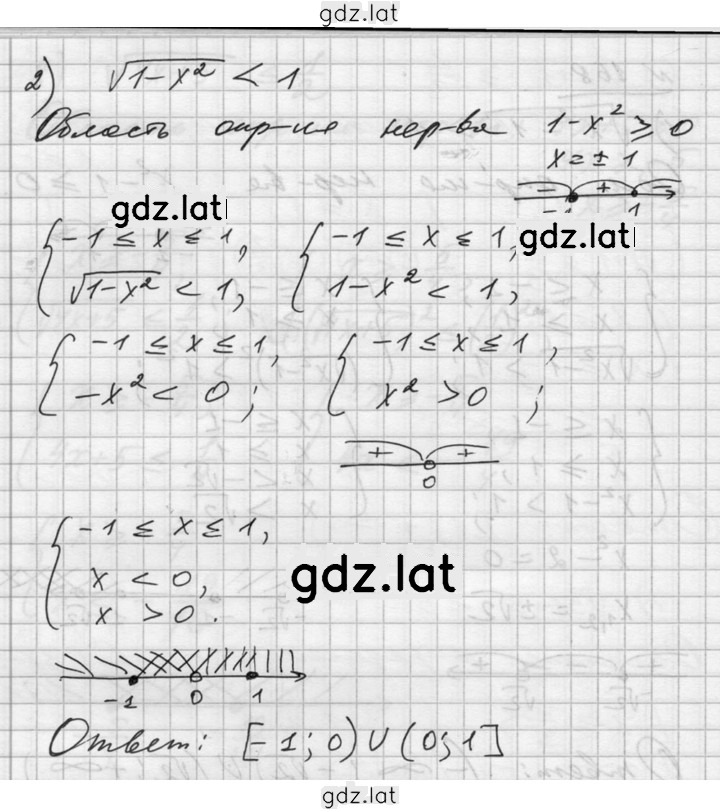 gdz.lat
2) √(1-x²) < 1
Область опр-ия нер-ва 1-x² ≥ 0
x = ± 1
- + -
-1 1
gdz.lat
{ -1 ≤ x ≤ 1, { -1 ≤ x ≤ 1,
gdz.lat
√(1-x²) < 1, 1-x² < 1,
{ -1 ≤ x ≤ 1, { -1 ≤ x ≤ 1,
-x² < 0; x² > 0;
+ +
0
{ -1 ≤ x ≤ 1,
x < 0,
gdz.lat
x > 0.
-1 0 1
Ответ: [-1; 0) ∪ (0; 1]
gdz.lat